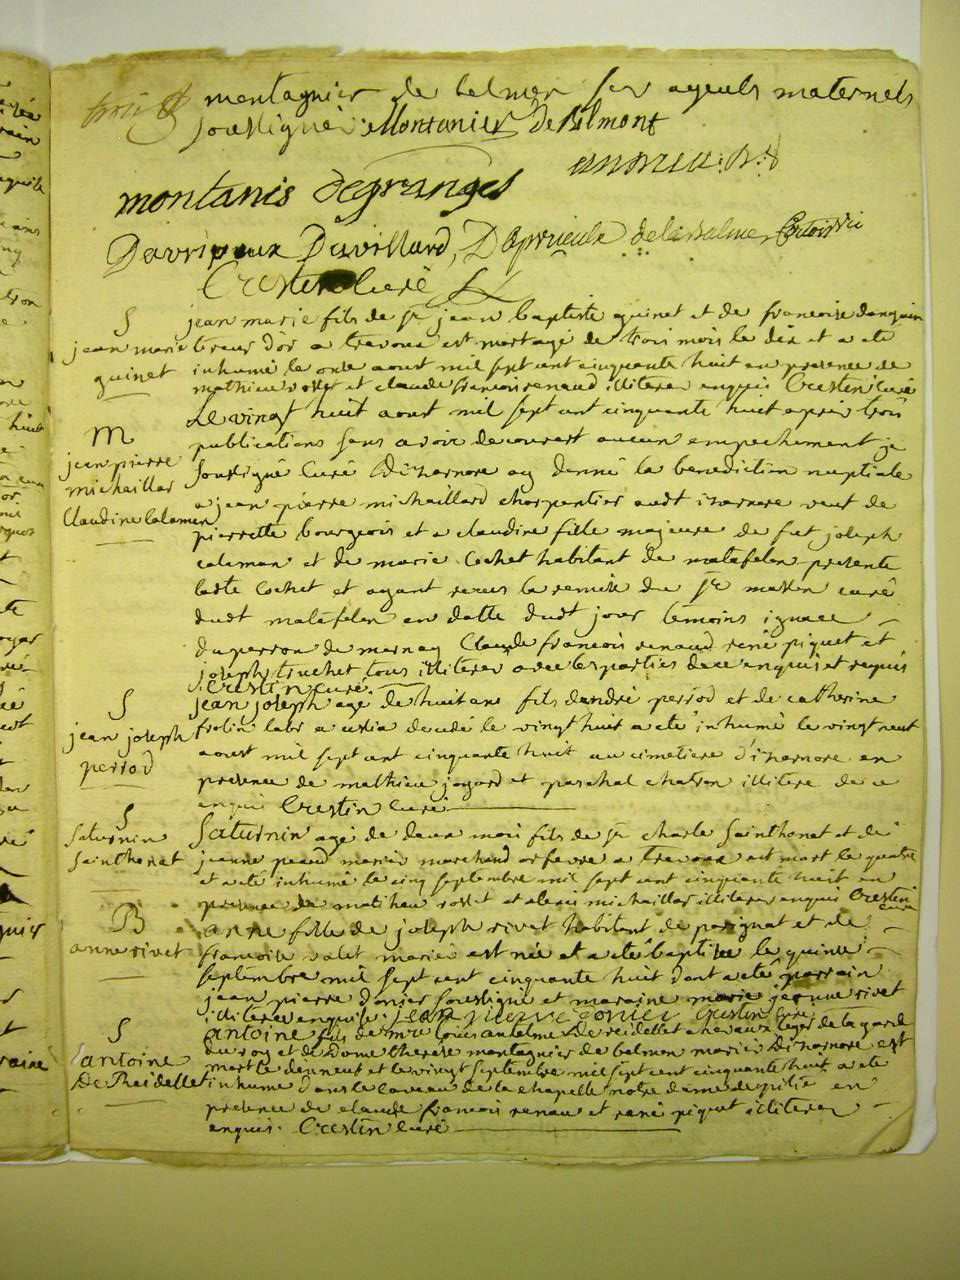 montagnier de belmon ses ayeuls maternels
soussignés Montanier De Belmont
montanis degranges
Davrieux Duvillard, De la balme
Crestin Curé
S
jean marie
guinet
jean marie fils de Sr jean baptiste guinet et de francoise
tireur d'or a trevoux est mort agé de trois mois le dix et a eté
inhumé le onze aoust mil sept cent cinquante huit en presence de
mathieu rosset et claude francois renaud illiteres enquis Crestin curé
M
jean pierre
michaillard
Claudine Calamen
Le vingt huit aoust mil sept cent cinquante huit apres trois
publications sans avoir decouvert aucun empechement je
soussigné curé d'izarnore ay donné la benediction nuptiale
a jean pierre michaillard charpentier audt izarnore veuf de
pierrette bourgeois et a claudine fille majeure de fut joseph
calaman et de marie Cochet habitant de matafelon presente
ladte Cochet et ayant receu la remise du Sr curé
dudt matafelon en datte dudt jour temoins ignace
duperron de mornay Claude francois renaud rené piquet et
joseph truchet tous illiteres avec les parties de ce enquis et requis
Crestin curé
S
jean joseph
perrod
jean joseph agé de huit ans fils d'andré perrod et de catherine
labr a decedé le vingt huit a eté inhumé le vingt neuf
aoust mil sept cent cinquante huit au cimetiere d'izarnore en
presence de mathieu et paschal chatron illitere de ce
enquis Crestin curé
S
Saturnin
Sainthonat
Saturnin agé de deux mois fils de Sr charle Sainthonat et de
jeanne mariés marchand orfevre a trevoux est mort le quatre
et a eté inhumé le cinq septembre mil sept cent cinquante huit en
presence de matthieu rosset et michaillard illiteres enquis Crestin
curé
B
anne rivet
anne fille de joseph rivet habitant de perignat et de
francoise valet mariés est née et a eté baptisée le quinze
septembre mil sept cent cinquante huit dont a eté parrain
jean pierre donier soussigné et maraine marie jeanne rivet
illitere enquise. jean pierre donier Crestin curé
S
antoine
De Reidellet
antoine fils de mre louis anselme De reidellet chevaux leger de la garde
du roy et de Dome therese montagnier de belmon mariés d'izarnore est
mort le dixneuf et le vingt septembre mil sept cent cinquante huit a eté
inhumé dans le caveau de la chapelle notre dame de pitié en
presence de claude francois renau et rené piquet illiteres
enquis. Crestin curé